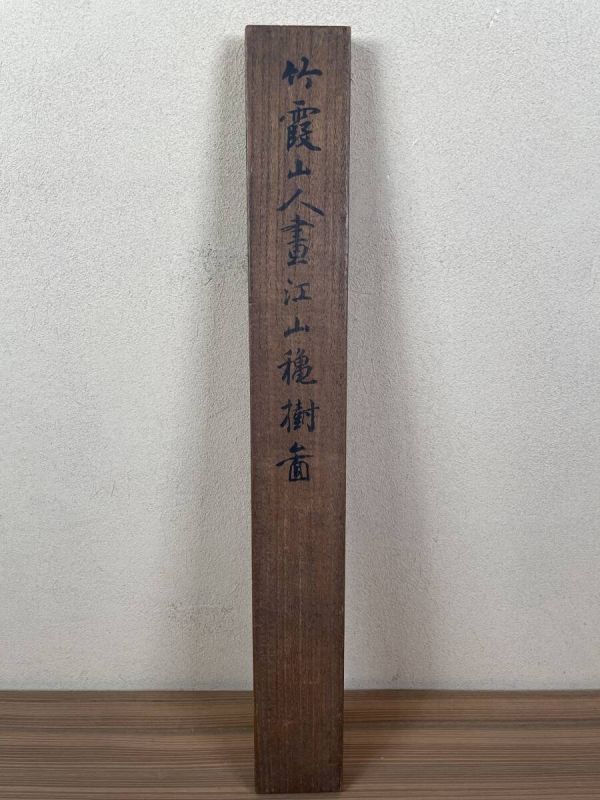 竹霞山人畫江山穐樹啚